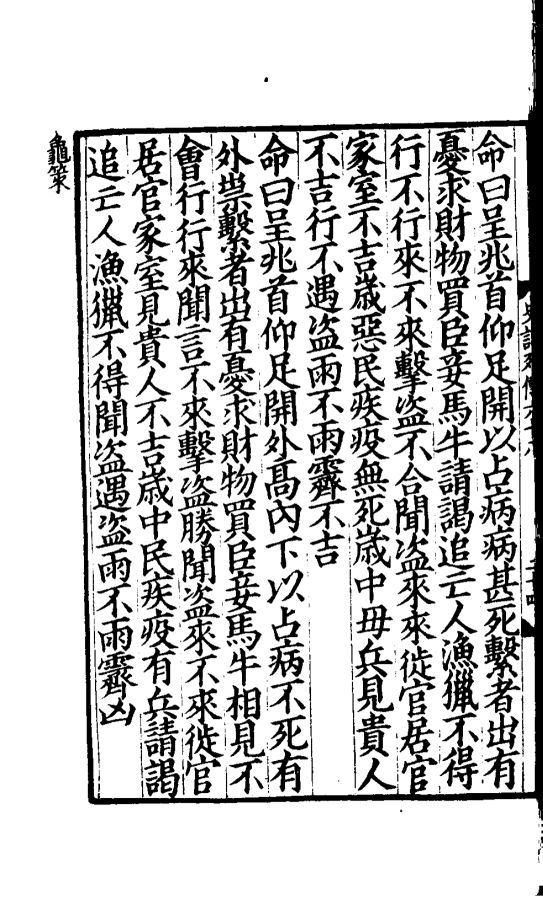 命曰呈兆首仰足開以占病病甚死繫者出有
憂求財物買臣妾馬牛請謁追亡人漁獵不得
行不行來不來擊盜不合聞盜來來徙官居官
家室不吉歲惡民疾疫無死歲中毋兵見貴人
不吉行不遇盜雨不雨霽不吉
命曰呈兆首仰足開外高內下以占病不死有
外祟繫者出有憂求財物買臣妾馬牛相見不
會行行來聞言不來擊盜勝聞盜來不來徙官
居官家室見貴人不吉歲中民疾疫有兵請謁
追亡人漁獵不得聞盜遇盜雨不雨霽凶
龜策